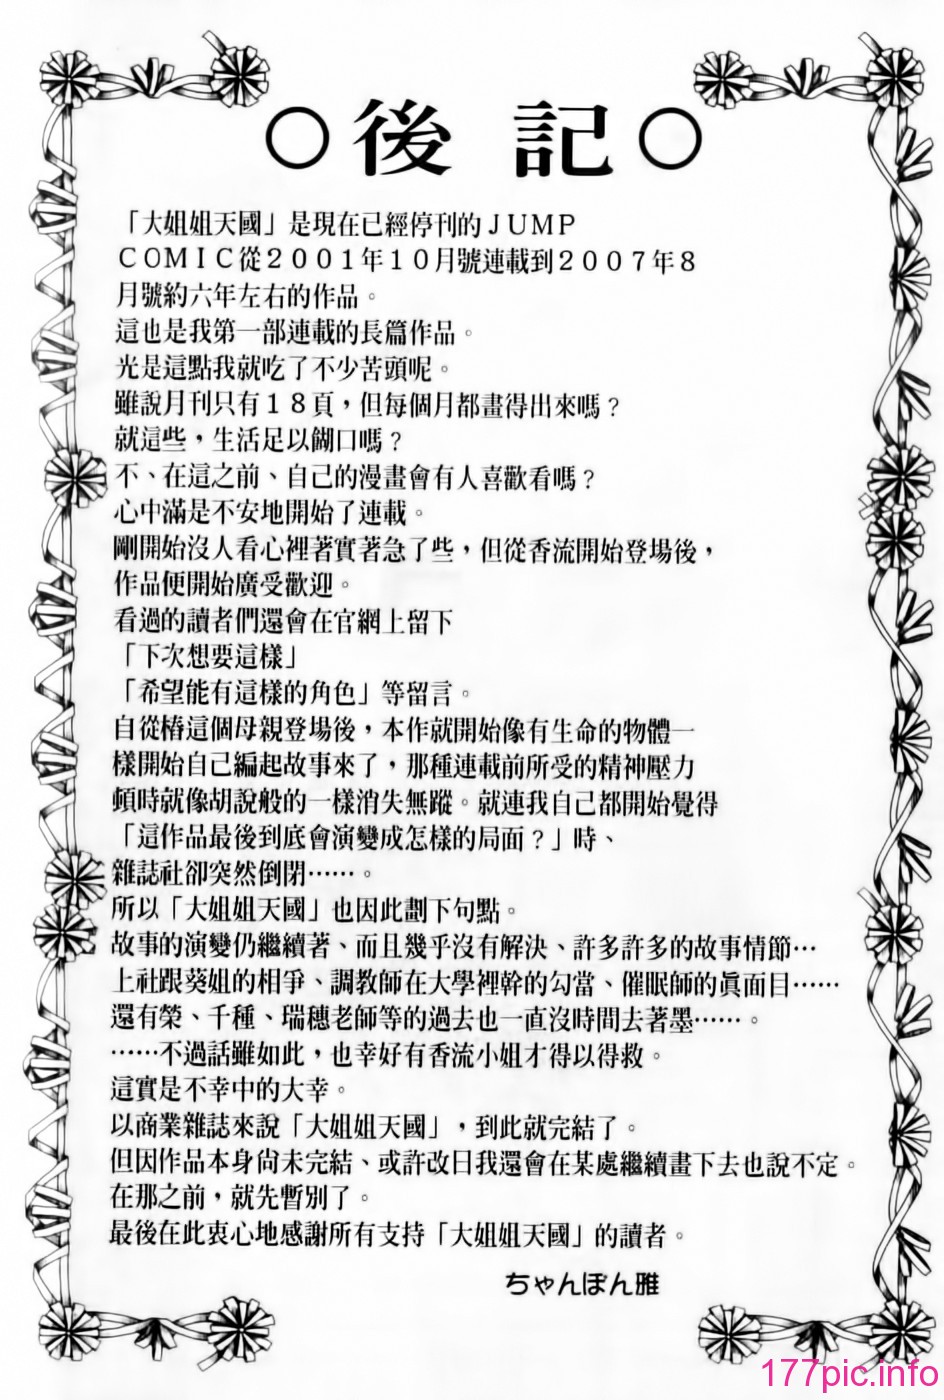 ○後記○
「大姐姐天國」是現在已經停刊的ＪＵＭＰ
ＣＯＭＩＣ從２００１年１０月號連載到２００７年８
月號約六年左右的作品。
這也是我第一部連載的長篇作品。
光是這點我就吃了不少苦頭呢。
雖說月刊只有１８頁，但每個月都畫得出來嗎？
就這些，生活足以餬口嗎？
不、在這之前、自己的漫畫會有人喜歡看嗎？
心中滿是不安地開始了連載。
剛開始沒人看心裡著實著急了些，但從香流開始登場後，
作品便開始廣受歡迎。
看過的讀者們還會在官網上留下
「下次想要這樣」
「希望能有這樣的角色」等留言。
自從椿這個母親登場後，本作就開始像有生命的物體一
樣開始自己編起故事來了，那種連載前所受的精神壓力
頓時就像胡說般的一樣消失無蹤。就連我自己都開始覺得
「這作品最後到底會演變成怎樣的局面？」時、
雜誌社卻突然倒閉……。
所以「大姐姐天國」也因此劃下句點。
故事的演變仍繼續著、而且幾乎沒有解決、許多許多的故事情節…
上社跟葵姐的相爭、調教師在大學裡幹的勾當、催眠師的眞面目……
還有榮、千種、瑞穗老師等的過去也一直沒時間去著墨……。
……不過話雖如此，也幸好有香流小姐才得以得救。
這實是不幸中的大幸。
以商業雜誌來說「大姐姐天國」，到此就完結了。
但因作品本身尚未完結、或許改日我還會在某處繼續畫下去也說不定。
在那之前，就先暫別了。
最後在此衷心地感謝所有支持「大姐姐天國」的讀者。
ちゃんぽん雅
177pic.info